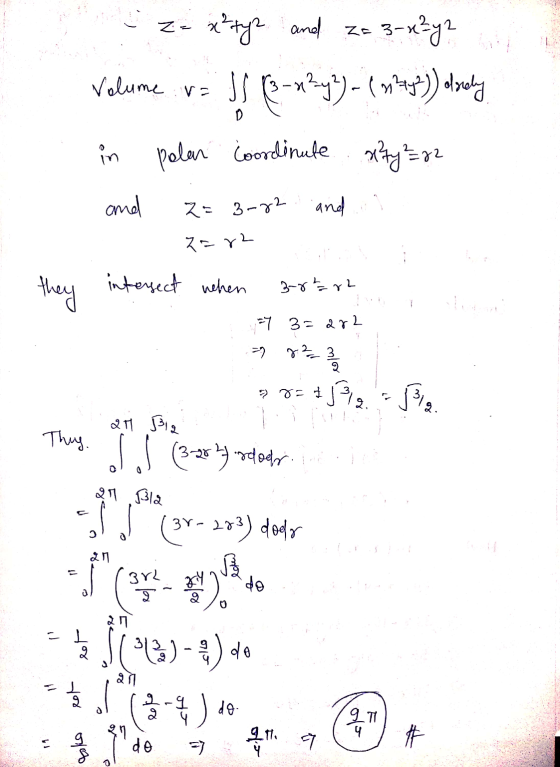 z = x²+y² and z = 3-x²-y²
Volume v = ∬_D ((3-x²-y²) - (x²+y²)) dxdy
in polar coordinate x²+y²=r²
and z = 3-r² and
z = r²
they intersect when 3-r² = r²
⇒ 3 = 2r²
⇒ r² = 3/2
⇒ r = ±√3/2. = √3/2.
Thus. ∫₀^{2π} ∫₀^{√3/2} (3-2r²) rdθdr.
= ∫₀^{2π} ∫₀^{√3/2} (3r - 2r³) dθdr
= ∫₀^{2π} (3r²/2 - r⁴/2)₀^{√3/2} dθ
= 1/2 ∫₀^{2π} (3(3/2) - 9/4) dθ
= 1/2 ∫₀^{2π} (9/2 - 9/4) dθ.
= 9/8 ∫₀^{2π} dθ ⇒ 9/4 π. ⇒ 9/4 π #